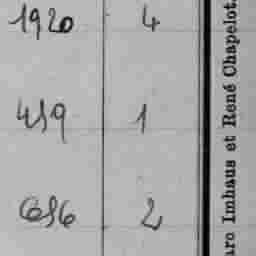 1920 4
459 1
656 2
aro Imhaus et René Chapelot.